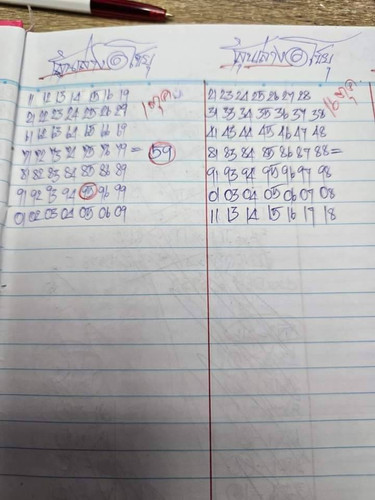 11 12 13 14 15 16 19
21 22 23 24 25 26 29
61 62 63 64 65 66 69
71 72 73 74 75 76 79 = 59
81 82 83 84 85 86 89
91 92 93 94 95 96 99
01 02 03 04 05 06 09
21 23 24 25 26 27 28
31 33 34 35 36 37 38
41 43 44 45 46 47 48
81 83 84 85 86 87 88 =
91 93 94 95 96 97 98
01 03 04 05 06 07 08
11 13 14 15 16 17 18